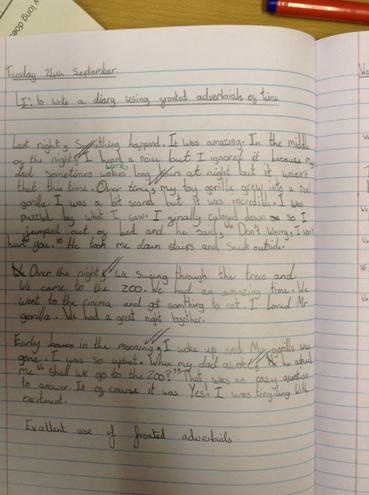 Tuesday 24th September.
LI: to write a diary using fronted adverbials of time
Last night, Something happend. It was amazing. In the middle
of the night, I heard a noise but I ignored it because my
dad sometimes works long hours at night but it wasn't
that this time. Over time, my toy gorilla grew into a real
gorilla. I was a bit scared but it was incredible. I was
puzzled by what I saw. I finally calmed down so I
jumped out of bed and he said, "Don't Worry, I won't
hurt you." He took me down stairs and snuck outside.
Over the night, We swung through the trees and
We came to the zoo. We had an amazing time. We
went to the cinema and got somthing to eat. I Loved Mr
gorilla. We had a great night together.
Early in the morning, I woke up and My gorilla was
gone. I was so upset. When my dad he asked
me "Shall we go to the zoo?" That was an easy question
to answer. It of course it was Yes. I was tingling with
exitment.
Excellent use of fronted adverbials
long does